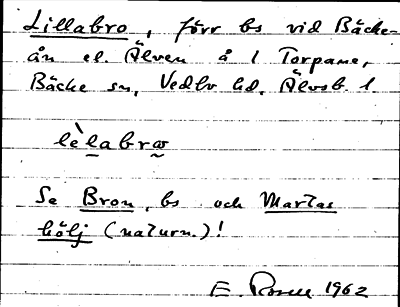 Lillabro, förr bs vid Bäcke-
ån el. Älven å 1 Torpane,
Bäcke sn, Vedbo hd, Älvsb. l.
lèlabrω
Se Bron, bs och Martas
hölj (naturn.)!
E. Rosell 1962